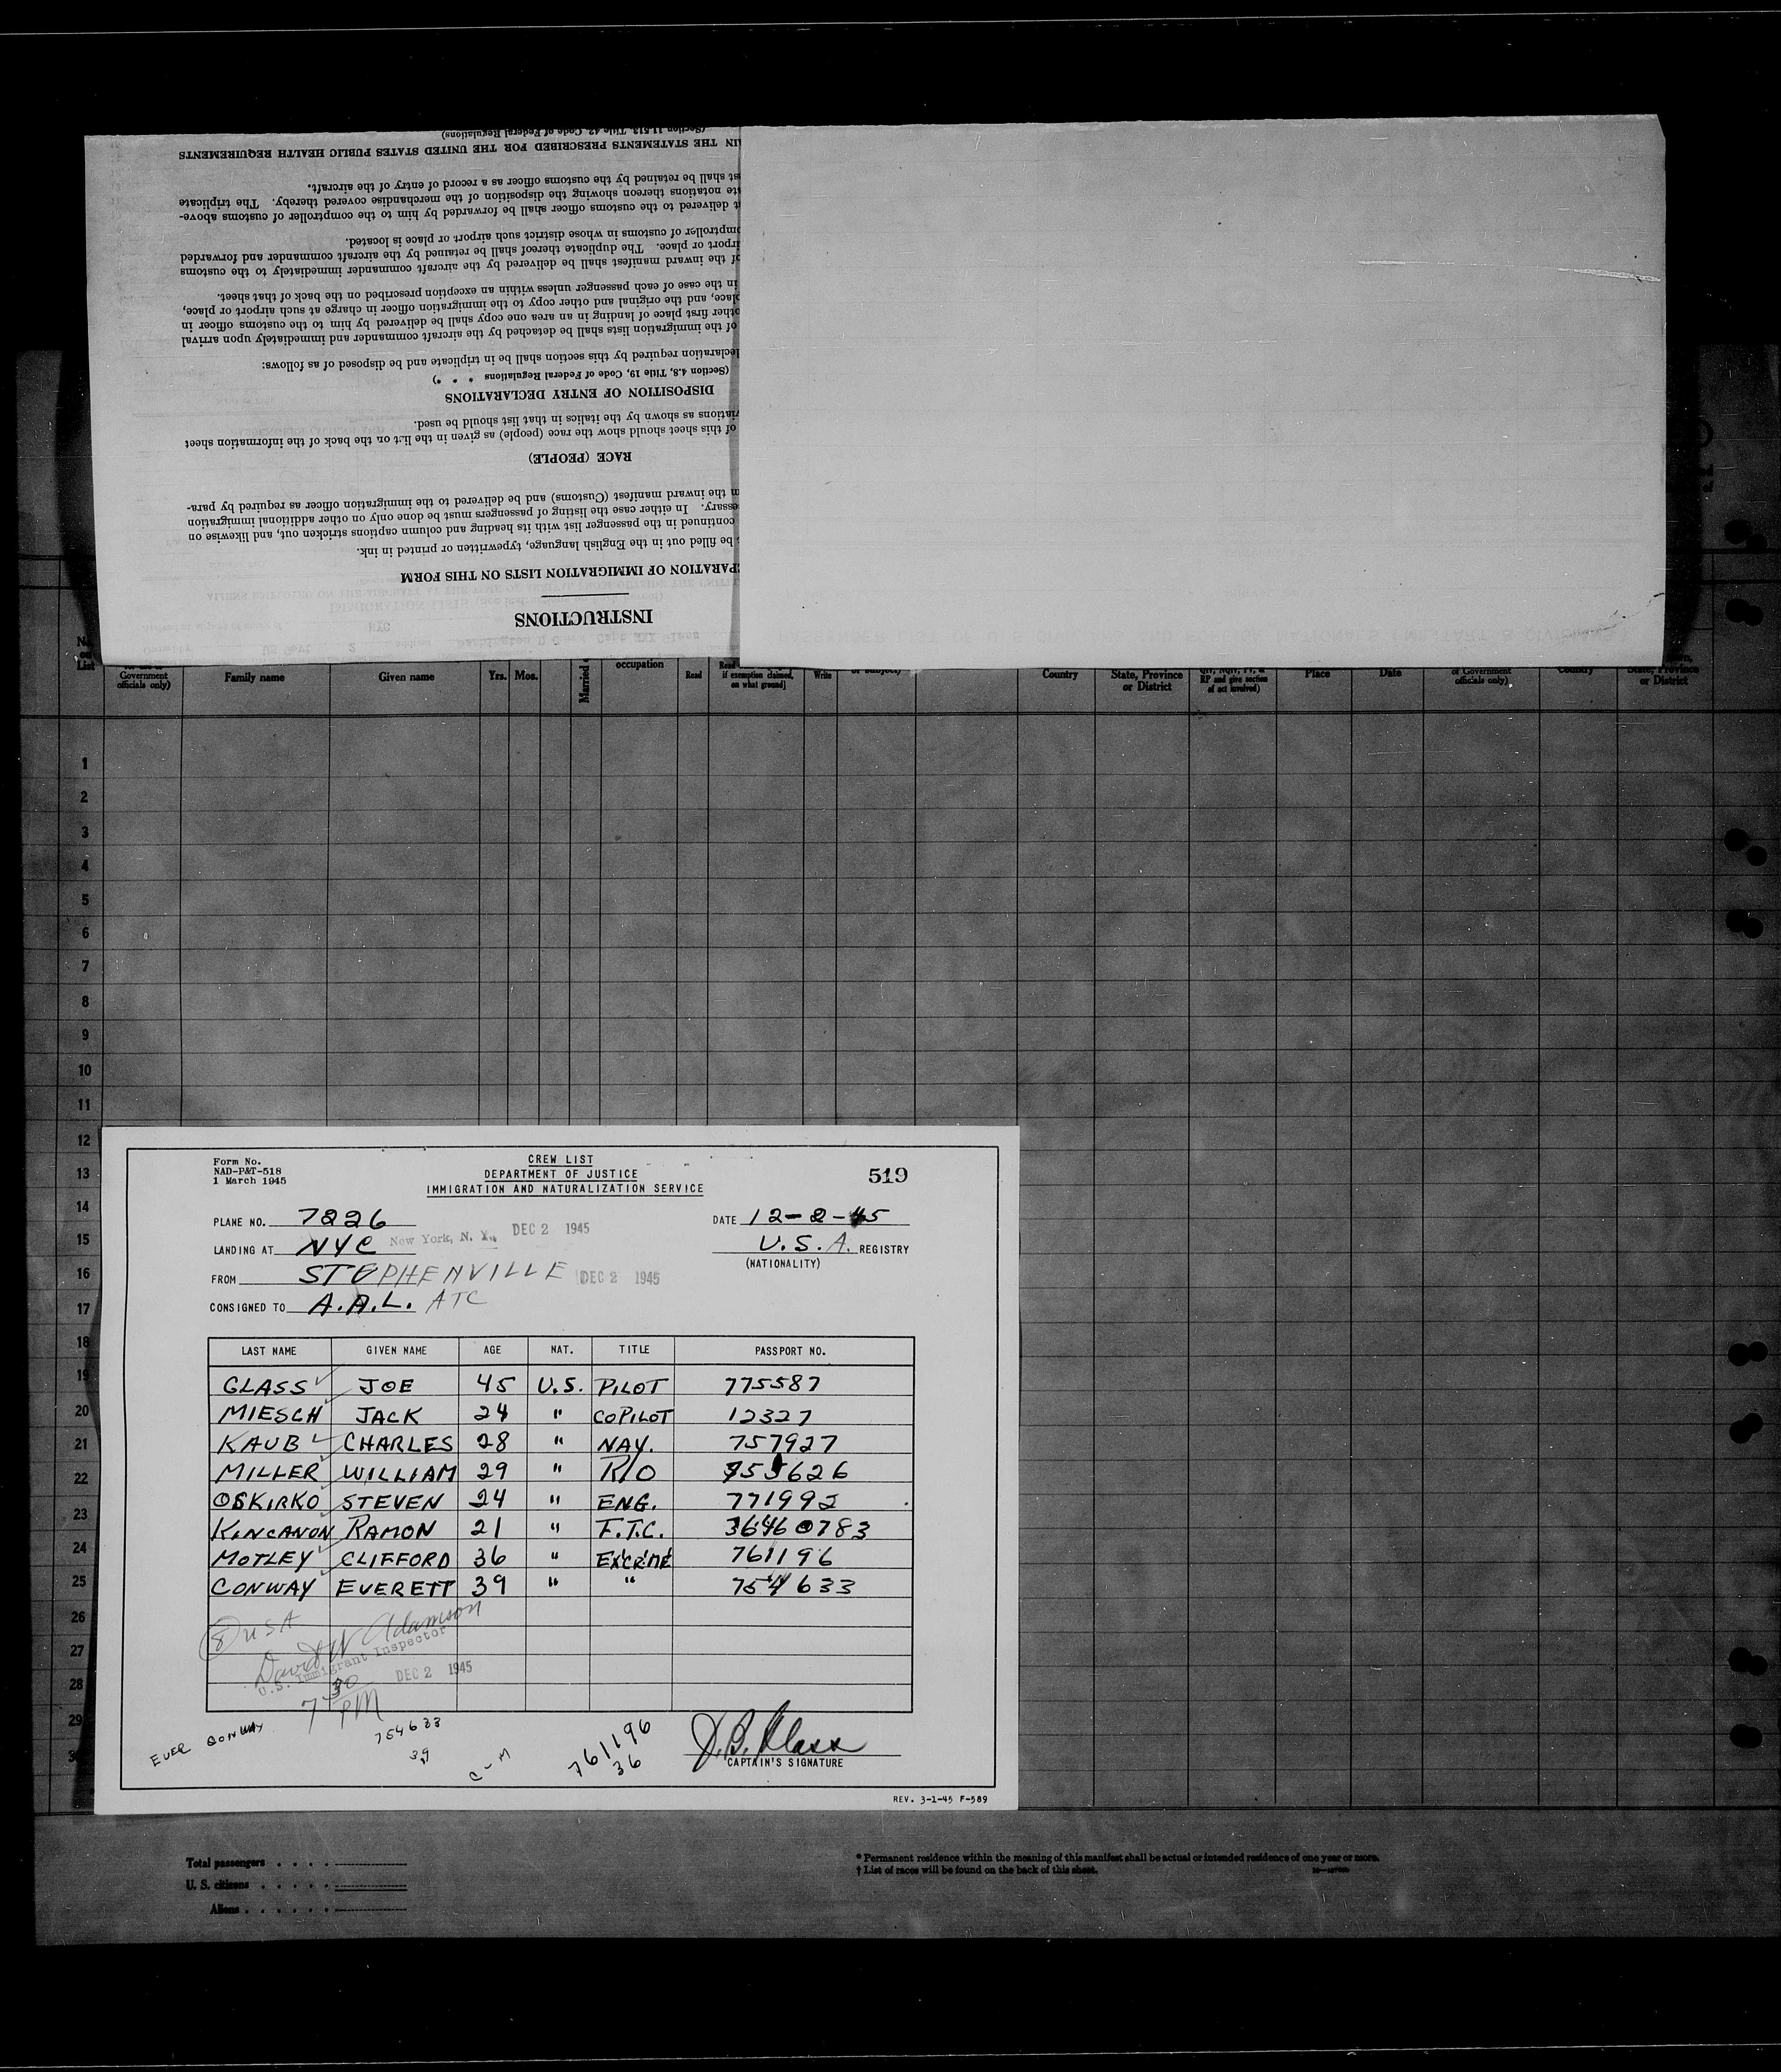 (Section 11.513, Title 42, Code of Federal Regulations)
IN THE STATEMENTS PRESCRIBED FOR THE UNITED STATES PUBLIC HEALTH REQUIREMENTS
st shall be retained by the customs officer as a record of entry of the aircraft.
te notations thereon showing the disposition of the merchandise covered thereby. The triplicate
t delivered to the customs officer shall be forwarded by him to the comptroller of customs above-
mptroller of customs in whose district such airport or place is located.
irport or place. The duplicate thereof shall be retained by the aircraft commander and forwarded
of the inward manifest shall be delivered by the aircraft commander immediately to the customs
in the case of each passenger unless within an exception prescribed on the back of that sheet.
lace, and the original and other copy to the immigration officer in charge at such airport or place,
other first place of landing in an area one copy shall be delivered by him to the customs officer in
of the immigration lists shall be detached by the aircraft commander and immediately upon arrival
declaration required by this section shall be in triplicate and be disposed of as follows:
(Section 4.8, Title 19, Code of Federal Regulations * * *)
DISPOSITION OF ENTRY DECLARATIONS
viations as shown by the italics in that list should be used.
of this sheet should show the race (people) as given in the list on the back of the information sheet
RACE (PEOPLE)
m the inward manifest (Customs) and be delivered to the immigration officer as required by para-
essary. In either case the listing of passengers must be done only on other additional immigration
continued in the passenger list with its heading and column captions stricken out, and likewise on
be filled out in the English language, typewritten or printed in ink.
PARATION OF IMMIGRATION LISTS ON THIS FORM
INSTRUCTIONS
No. on List
Government officials only)
Family name
Given name
Yrs. Mos.
Married
occupation
Read
Read if exemption claimed, on what ground]
Write
or subject)
Country
State, Province or District
RP and give section of act involved)
Place
Date
of Government officials only)
Country
State, Province or District
1
2
3
4
5
6
7
8
9
10
11
12
13
14
15
16
17
18
19
20
21
22
23
24
25
26
27
28
29
Form No.
NAD-P&T-518
1 March 1945
CREW LIST
DEPARTMENT OF JUSTICE
IMMIGRATION AND NATURALIZATION SERVICE
519
PLANE NO. 7226
DATE 12-2-45
LANDING AT NYC New York, N. Y., DEC 2 1945
U.S.A. REGISTRY
(NATIONALITY)
FROM STEPHENVILLE DEC 2 1945
CONSIGNED TO A.A.L. ATC
LAST NAME GIVEN NAME AGE NAT. TITLE PASSPORT NO.
GLASS JOE 45 U.S. PILOT 775587
MIESCH JACK 24 " COPILOT 12327
KAUB CHARLES 28 " NAV. 757927
MILLER WILLIAM 29 " R/O 755626
OSKIRKO STEVEN 24 " ENG. 771992
KINCANON RAMON 21 " F.T.C. 36460783
MOTLEY CLIFFORD 36 " 761196
CONWAY EVERETT 39 " " 754633
8 USA
David W Adamson
U.S. Immigrant Inspector
DEC 2 1945
7 30 PM
EVER CONWAY
754633
39
C-M
761196
36
J.B. Glass
CAPTAIN'S SIGNATURE
REV. 3-1-45 F-589
Total passengers . . . .
U. S. citizens . . . . .
Aliens . . . . . .
* Permanent residence within the meaning of this manifest shall be actual or intended residence of one year or more.
† List of races will be found on the back of this sheet.